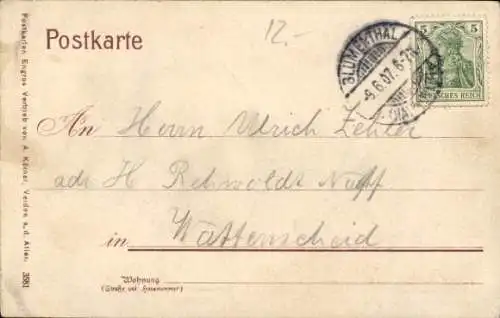 12.-
Postkarte
BLUMENTHAL
-9.6.07. 6-7
(HANNOVER)
5 5
DEUTSCHES REICH
An Herrn Ulrich Zehler
adr H Rehwoldt
in Wattenscheid
Wohnung
(Straße und Hausnummer)
Postkarten Engros Vertrieb von A. Körner, Verden a. d. Aller. 3981